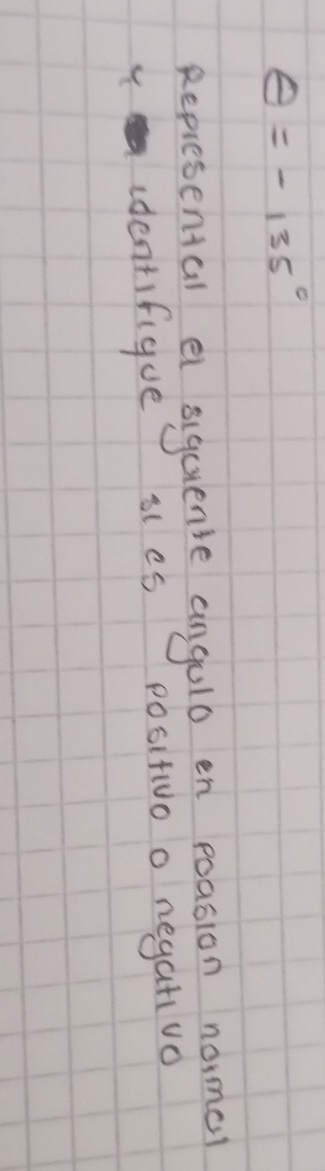 θ = - 135°
Representar el siguiente angulo en posision normal
y identifique si es positivo o negativo